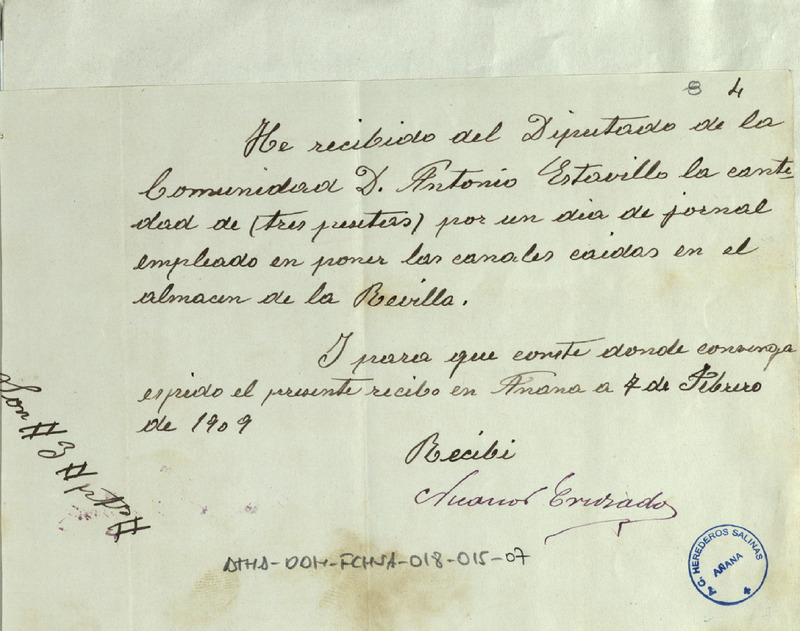 8 4
He recibido del Diputado de la
Comunidad D. Antonio Estavillo la canti-
dad de (tres pesetas) por un dia de jornal
empleado en poner las canales caidas en el
almacen de la Revilla.
I para que conste donde convenga
espido el presente recibo en Añana a 7 de Febrero
de 1909
Recibi
Cruzado
Son # 3 # pt #
ATHA-DOH-FCHSA-018-015-07
P. G. HEREDEROS SALINAS
AÑANA